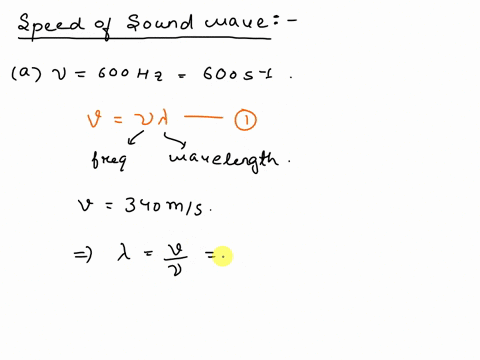 Speed of Sound wave:-
(a) ν = 600 Hz = 600 s⁻¹.
v = νλ —— ①
freq wavelength.
v = 340 m/s.
⇒ λ = v/ν =